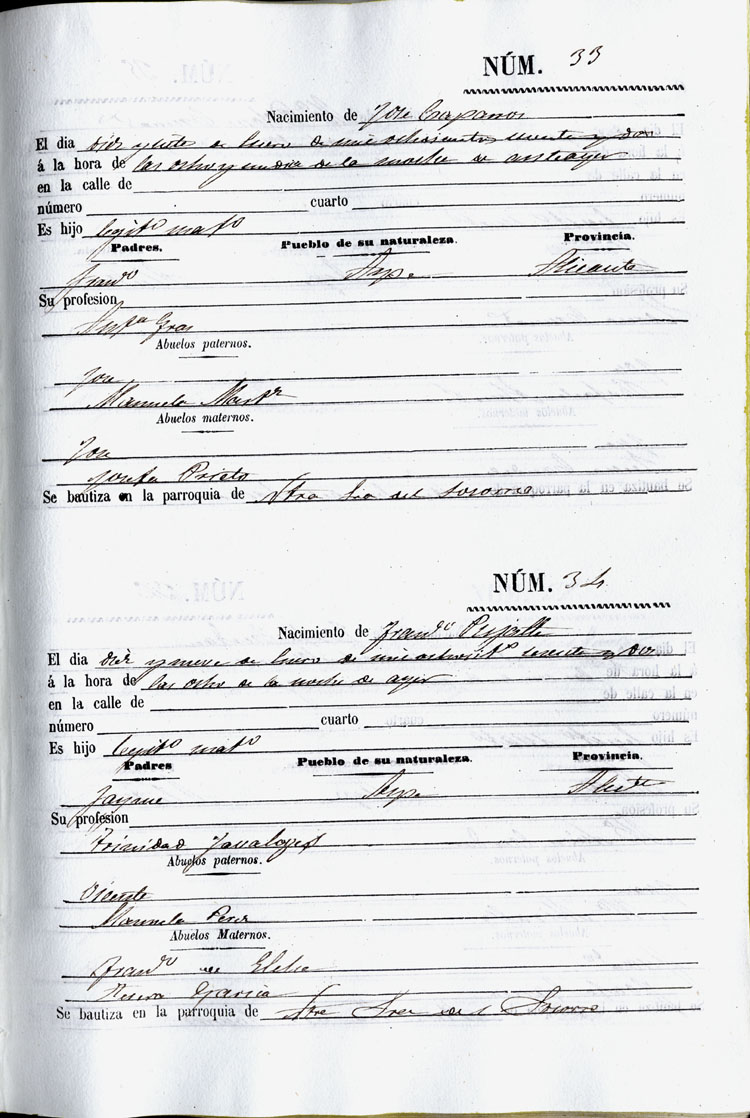 NÚM. 33
Nacimiento de Jose
El dia diez y ocho de Enero de mil ochocientos sesenta y dos
á la hora de las ocho y media de la noche de antes ayer
en la calle de
número cuarto
Es hijo legitº matº
Padres. Pueblo de su naturaleza. Provincia.
Francº Aspe Alicante
Su profesion
Gras
Abuelos paternos.
Jose
Manuela Martz
Abuelos maternos.
Jose
Josefa Prieto
Se bautiza en la parroquia de Ntra Sra del Socorro
NÚM. 34
Nacimiento de Francº
El dia diez y nueve de Enero de mil sesenta y dos
á la hora de las ocho de la noche de ayer
en la calle de
número cuarto
Es hijo legitº matº
Padres Pueblo de su naturaleza. Provincia.
Jayme Aspe Alicte
Su profesion
Trinidad
Abuelos paternos.
Vicente
Manuela Perez
Abuelos Maternos.
Francº de Elche
Teresa Garcia
Se bautiza en la parroquia de Ntra Sra del Socorro